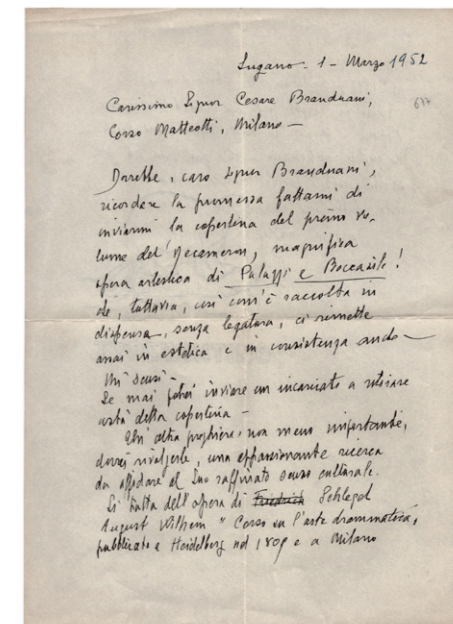 Lugano - 1 - Marzo 1952
Carissimo Signor Cesare Branduani,
677
Corso Matteotti, Milano -
Dovrebbe, caro Signor Branduani,
ricordare la promessa fattami di
inviarmi la copertina del primo vo-
lume del Decameron, magnifica
opera artistica di Palazzi e Boccasile!
così com'è raccolta in
dispensa, senza legatura, ci rimette
assai in estetica e in consistenza
Mi scusi -
Se mai potrei inviare un incaricato a ritirare
della copertina -
Un'altra preghiera, non meno importante,
dovrei rivolgerle, una appassionante ricerca
da affidare al Suo raffinato senso culturale.
Si tratta dell'opera di Friedrich Schlegel
August Wilhelm "Corso su l'arte drammatica",
pubblicato a Heidelberg nel 1809 e a Milano